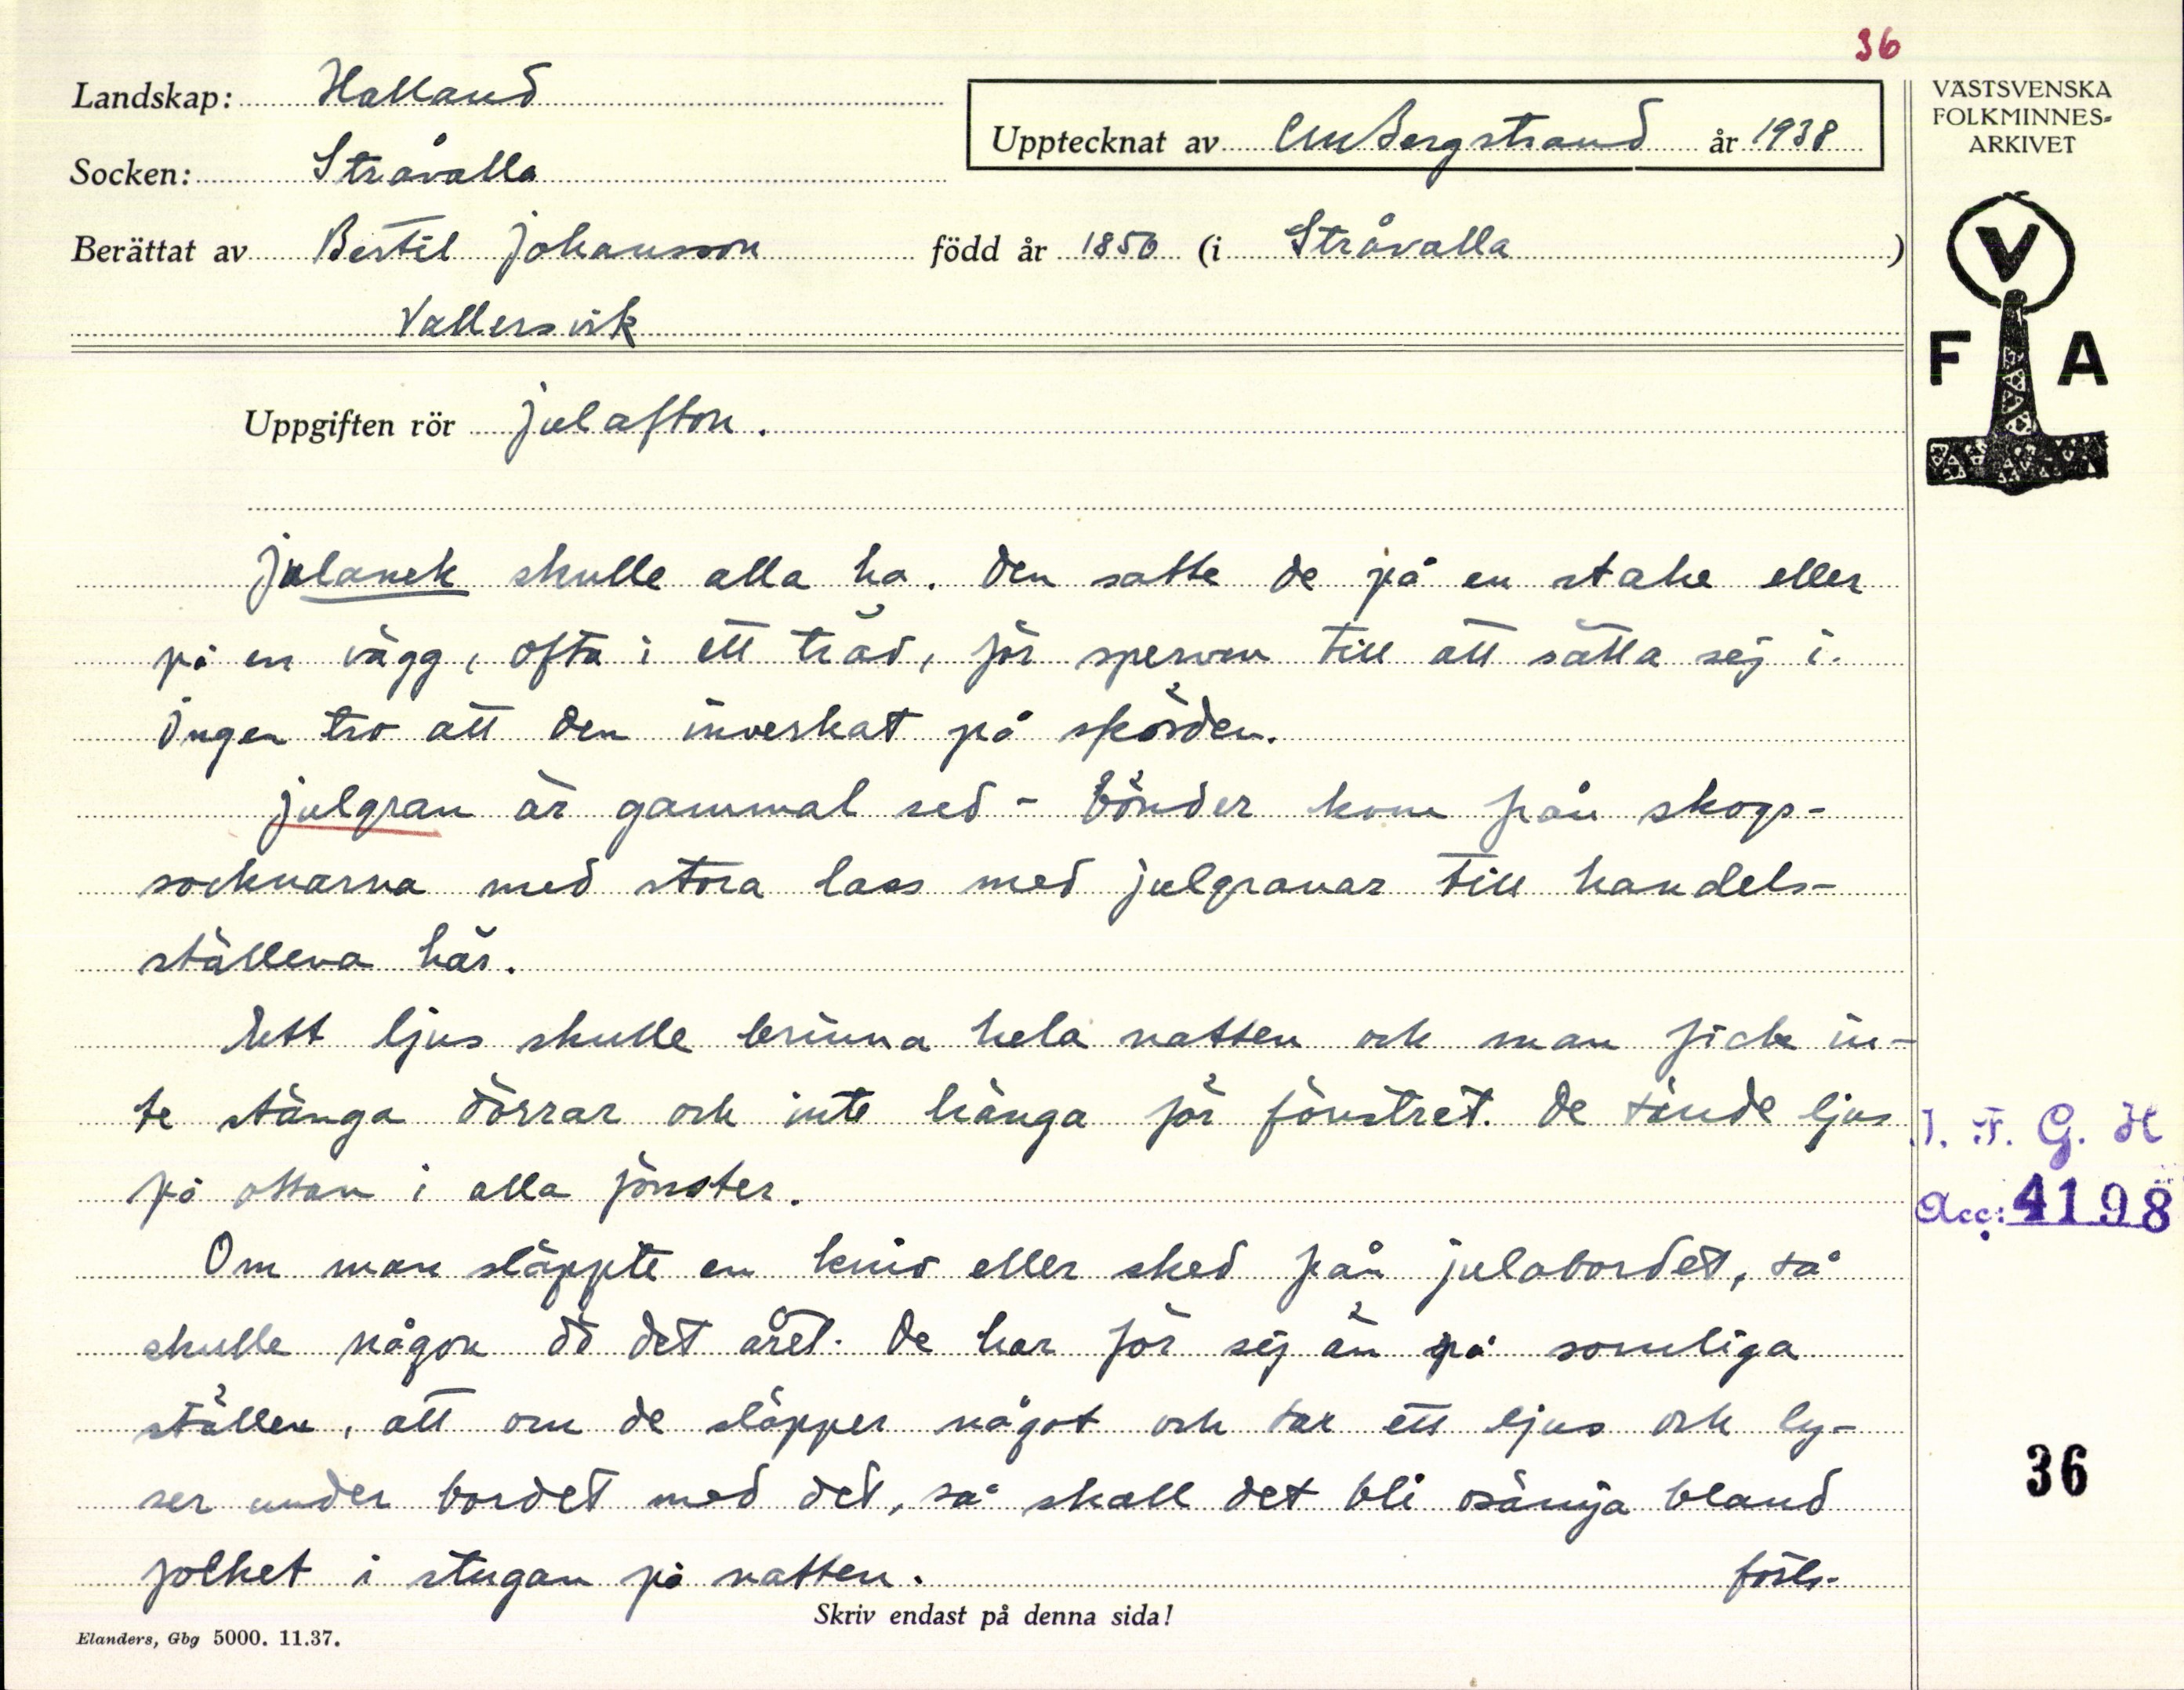 36
Landskap: Halland
Socken: Stråvalla
Upptecknat av CM Bergstrand år 1938
Berättat av Bertil Johansson född år 1850 (i Stråvalla)
Vallersvik
VÄSTSVENSKA
FOLKMINNES-
ARKIVET
V
F A
Uppgiften rör Julafton.
Julanek skulle alla ha. Den satte de på en stake eller
på en vägg, ofta i ett träd, för sperven till att sätta sej i.
Ingen tro att den inverkat på skörden.
Julgran är gammal sed - Bönder kom från skogs-
socknarna med stora lass med julgranar till handels-
ställena här.
Ett ljus skulle brinna hela natten och man fick in-
te stänga dörrar och inte hänga för fönstret. De tände ljus
på ottan i alla fönster.
Om man släppte en kniv eller sked från julabordet, så
skulle någon dö det året. De har för sej än på somliga
ställen, att om de släpper något och tar ett ljus och ly-
ser under bordet med det, så skall det bli osämja bland
folket i stugan på natten.
forts.
I. F. G. H
Acc: 4198
36
Skriv endast på denna sida!
Elanders, Gbg 5000. 11.37.